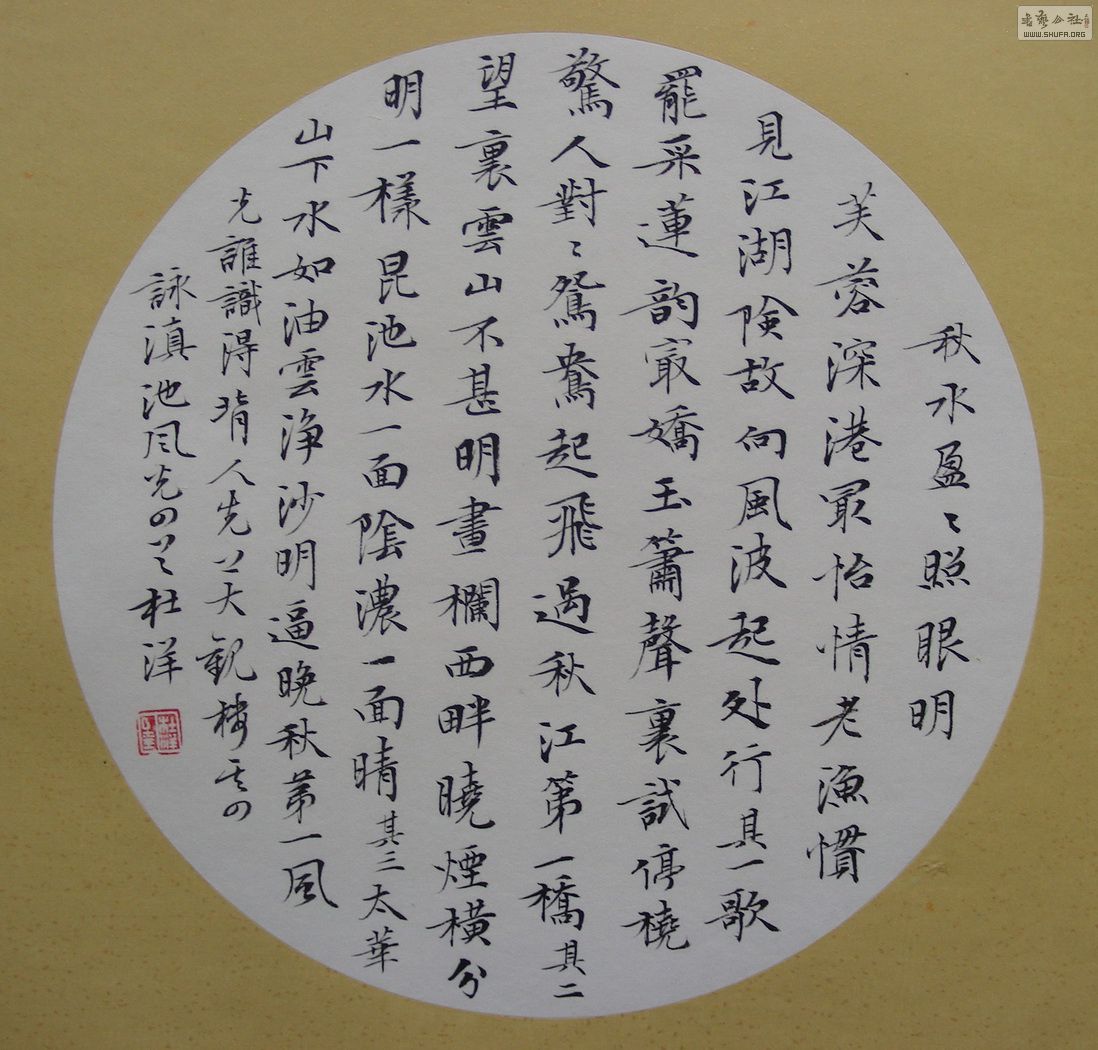 秋水盈〻照眼明
芙蓉深港最怡情老漁慣
見江湖険故向風波起处行其一歌
罷采蓮韵最嬌玉簫聲裏試停橈
驚人對〻鴛鴦起飛過秋江第一橋其二
望裏雲山不甚明畫欄西畔曉煙橫分
明一樣昆池水一面陰濃一面晴其三太華
山下水如油雲浄沙明逼晚秋第一風
光誰識得背人先上大觀樓其四
詠滇池風光四首杜洋
WWW.SHUFA.ORG